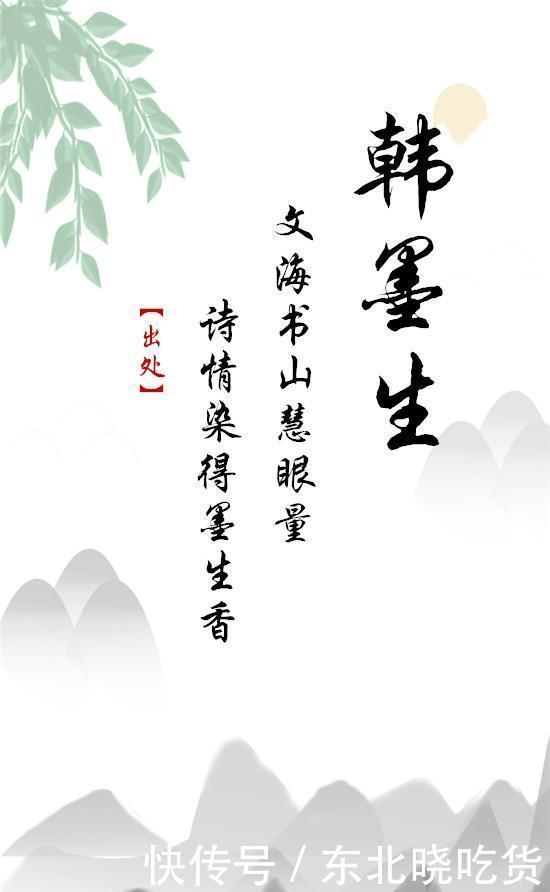 韩墨生
文海书山慧眼量
诗情染得墨生香
【出处】
快传号/东北晓吃货